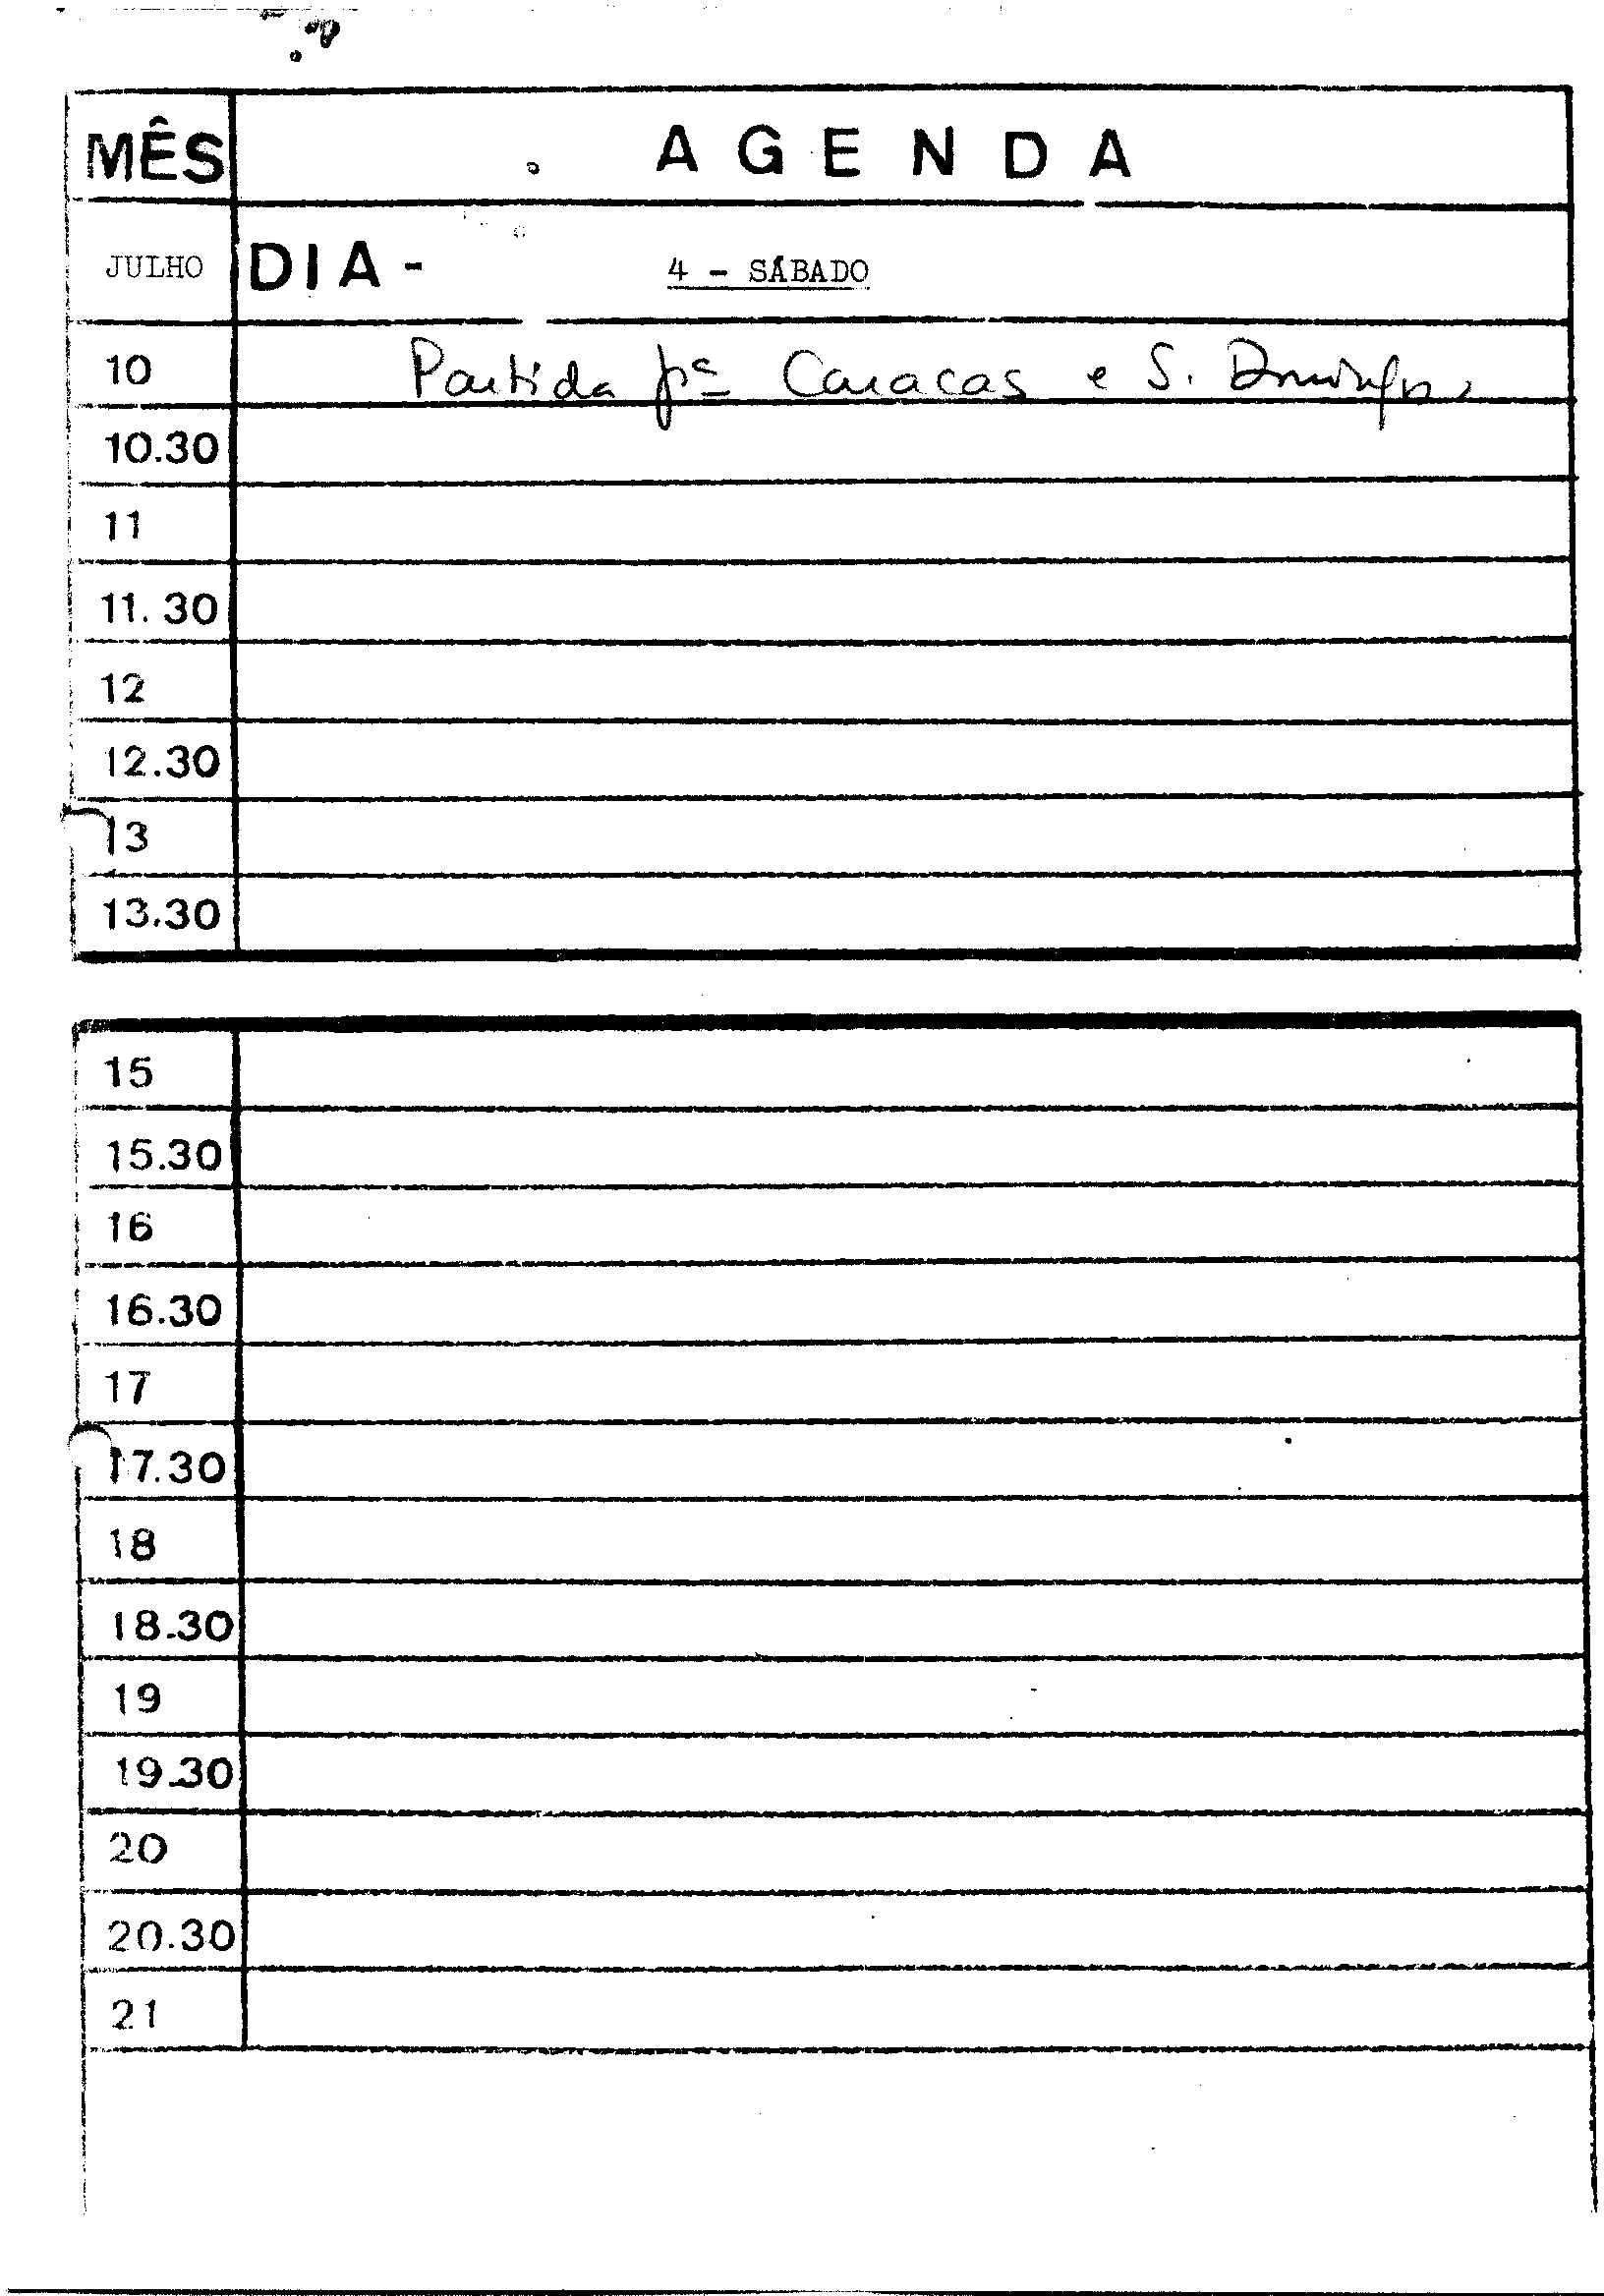 MÊS AGENDA
JULHO DIA - 4 - SÁBADO
10 Partida pª Caracas e S. Domingos
10.30
11
11.30
12
12.30
13
13.30
15
15.30
16
16.30
17
17.30
18
18.30
19
19.30
20
20.30
21